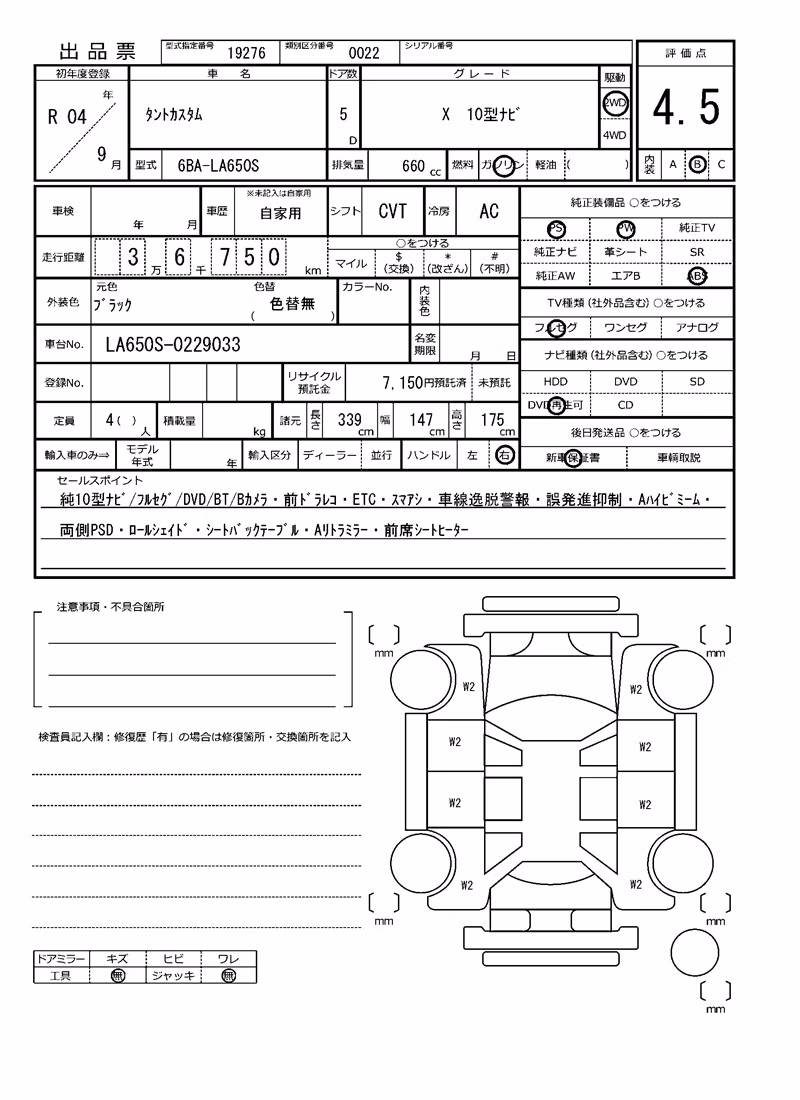 出品票
型式指定番号 19276 類別区分番号 0022 シリアル番号
評価点
4.5
内装 A B C
初年度登録 車名 ドア数 グレード 駆動
R 04 年 9 月 タントカスタム 5 D X 10型ナビ 2WD
4WD
型式 6BA-LA650S 排気量 660 cc 燃料 ガソリン 軽油 ( )
車検 年 月 車歴 ※未記入は自家用 自家用 シフト CVT 冷房 AC
走行距離 3 万 6 千 7 5 0 km
○をつける
マイル $(交換) *(改ざん) #(不明)
外装色 元色 ブラック 色替 ( 色替無 ) カラーNo. 内装色
車台No. LA650S-0229033 名変期限 月 日
登録No. リサイクル預託金 7,150円預託済 未預託
定員 4( ) 人 積載量 kg 諸元 長さ 339 cm 幅 147 cm 高さ 175 cm
輸入車のみ⇒ モデル年式 年 輸入区分 ディーラー 並行 ハンドル 左 右
純正装備品 ○をつける
PS PW 純正TV
純正ナビ 革シート SR
純正AW エアB ABS
TV種類(社外品含む)○をつける
フルセグ ワンセグ アナログ
ナビ種類(社外品含む)○をつける
HDD DVD SD
DVD再生可 CD
後日発送品 ○をつける
新車保証書 車輌取説
セールスポイント
純10型ナビ/フルセグ/DVD/BT/Bカメラ・前ドラレコ・ETC・スマアシ・車線逸脱警報・誤発進抑制・Aハイビーム・
両側PSD・ロールシェイド・シートバックテーブル・Aリトラミラー・前席シートヒーター
注意事項・不具合箇所
検査員記入欄:修復歴「有」の場合は修復箇所・交換箇所を記入
ドアミラー キズ ヒビ ワレ
工具 無 ジャッキ 無
mm mm
W2 W2
W2 W2
W2 W2
W2 W2
mm mm
mm